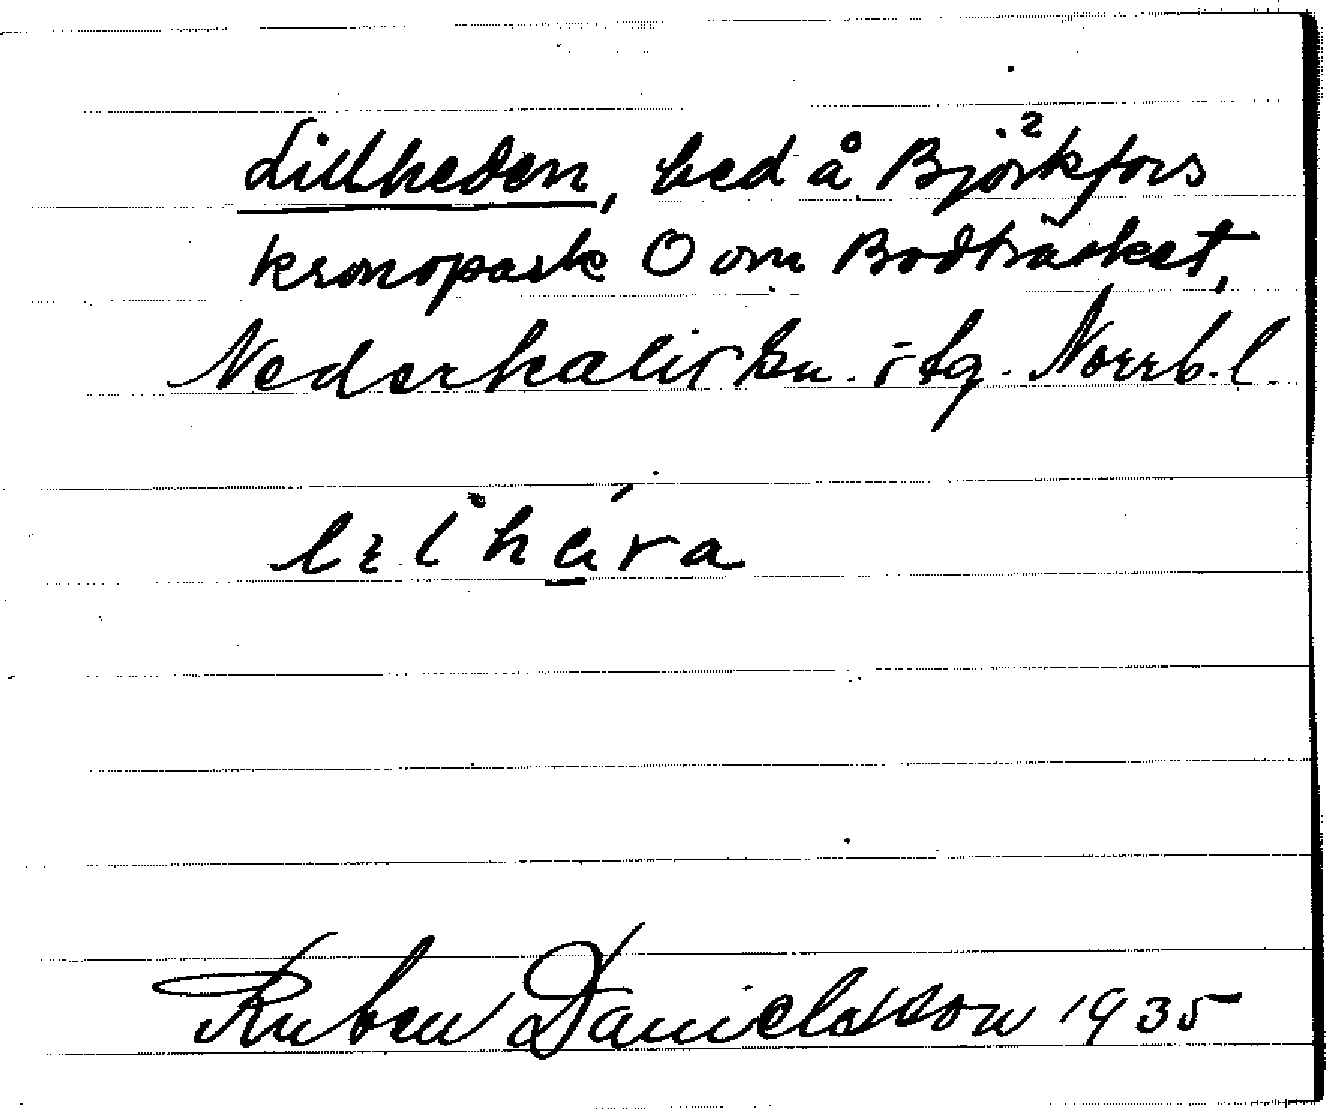 Lillheden, hed å Björkfors
kronopark O om Bodträsket,
Nederkalix sn. o. tg. Norrb. l.
Ruben Danielsson 1935